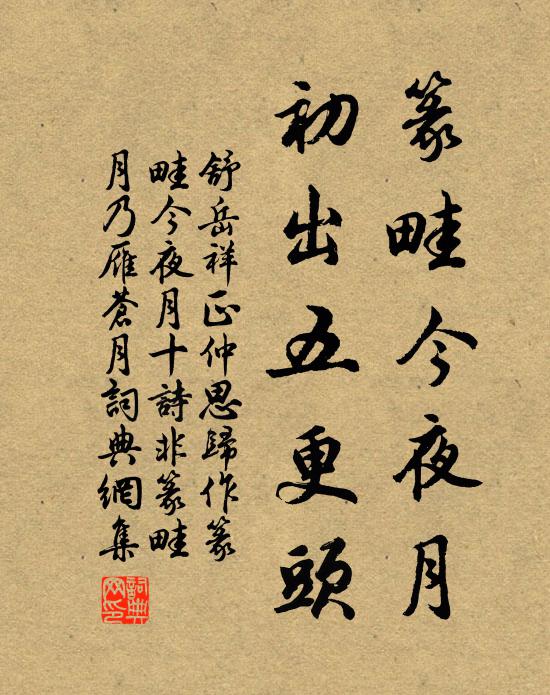 篆畦今夜月
初出五更頭
舒岳祥正仲思歸作篆
畦今夜月十詩非篆畦
月乃雁蒼月詞典網集
詞典网印